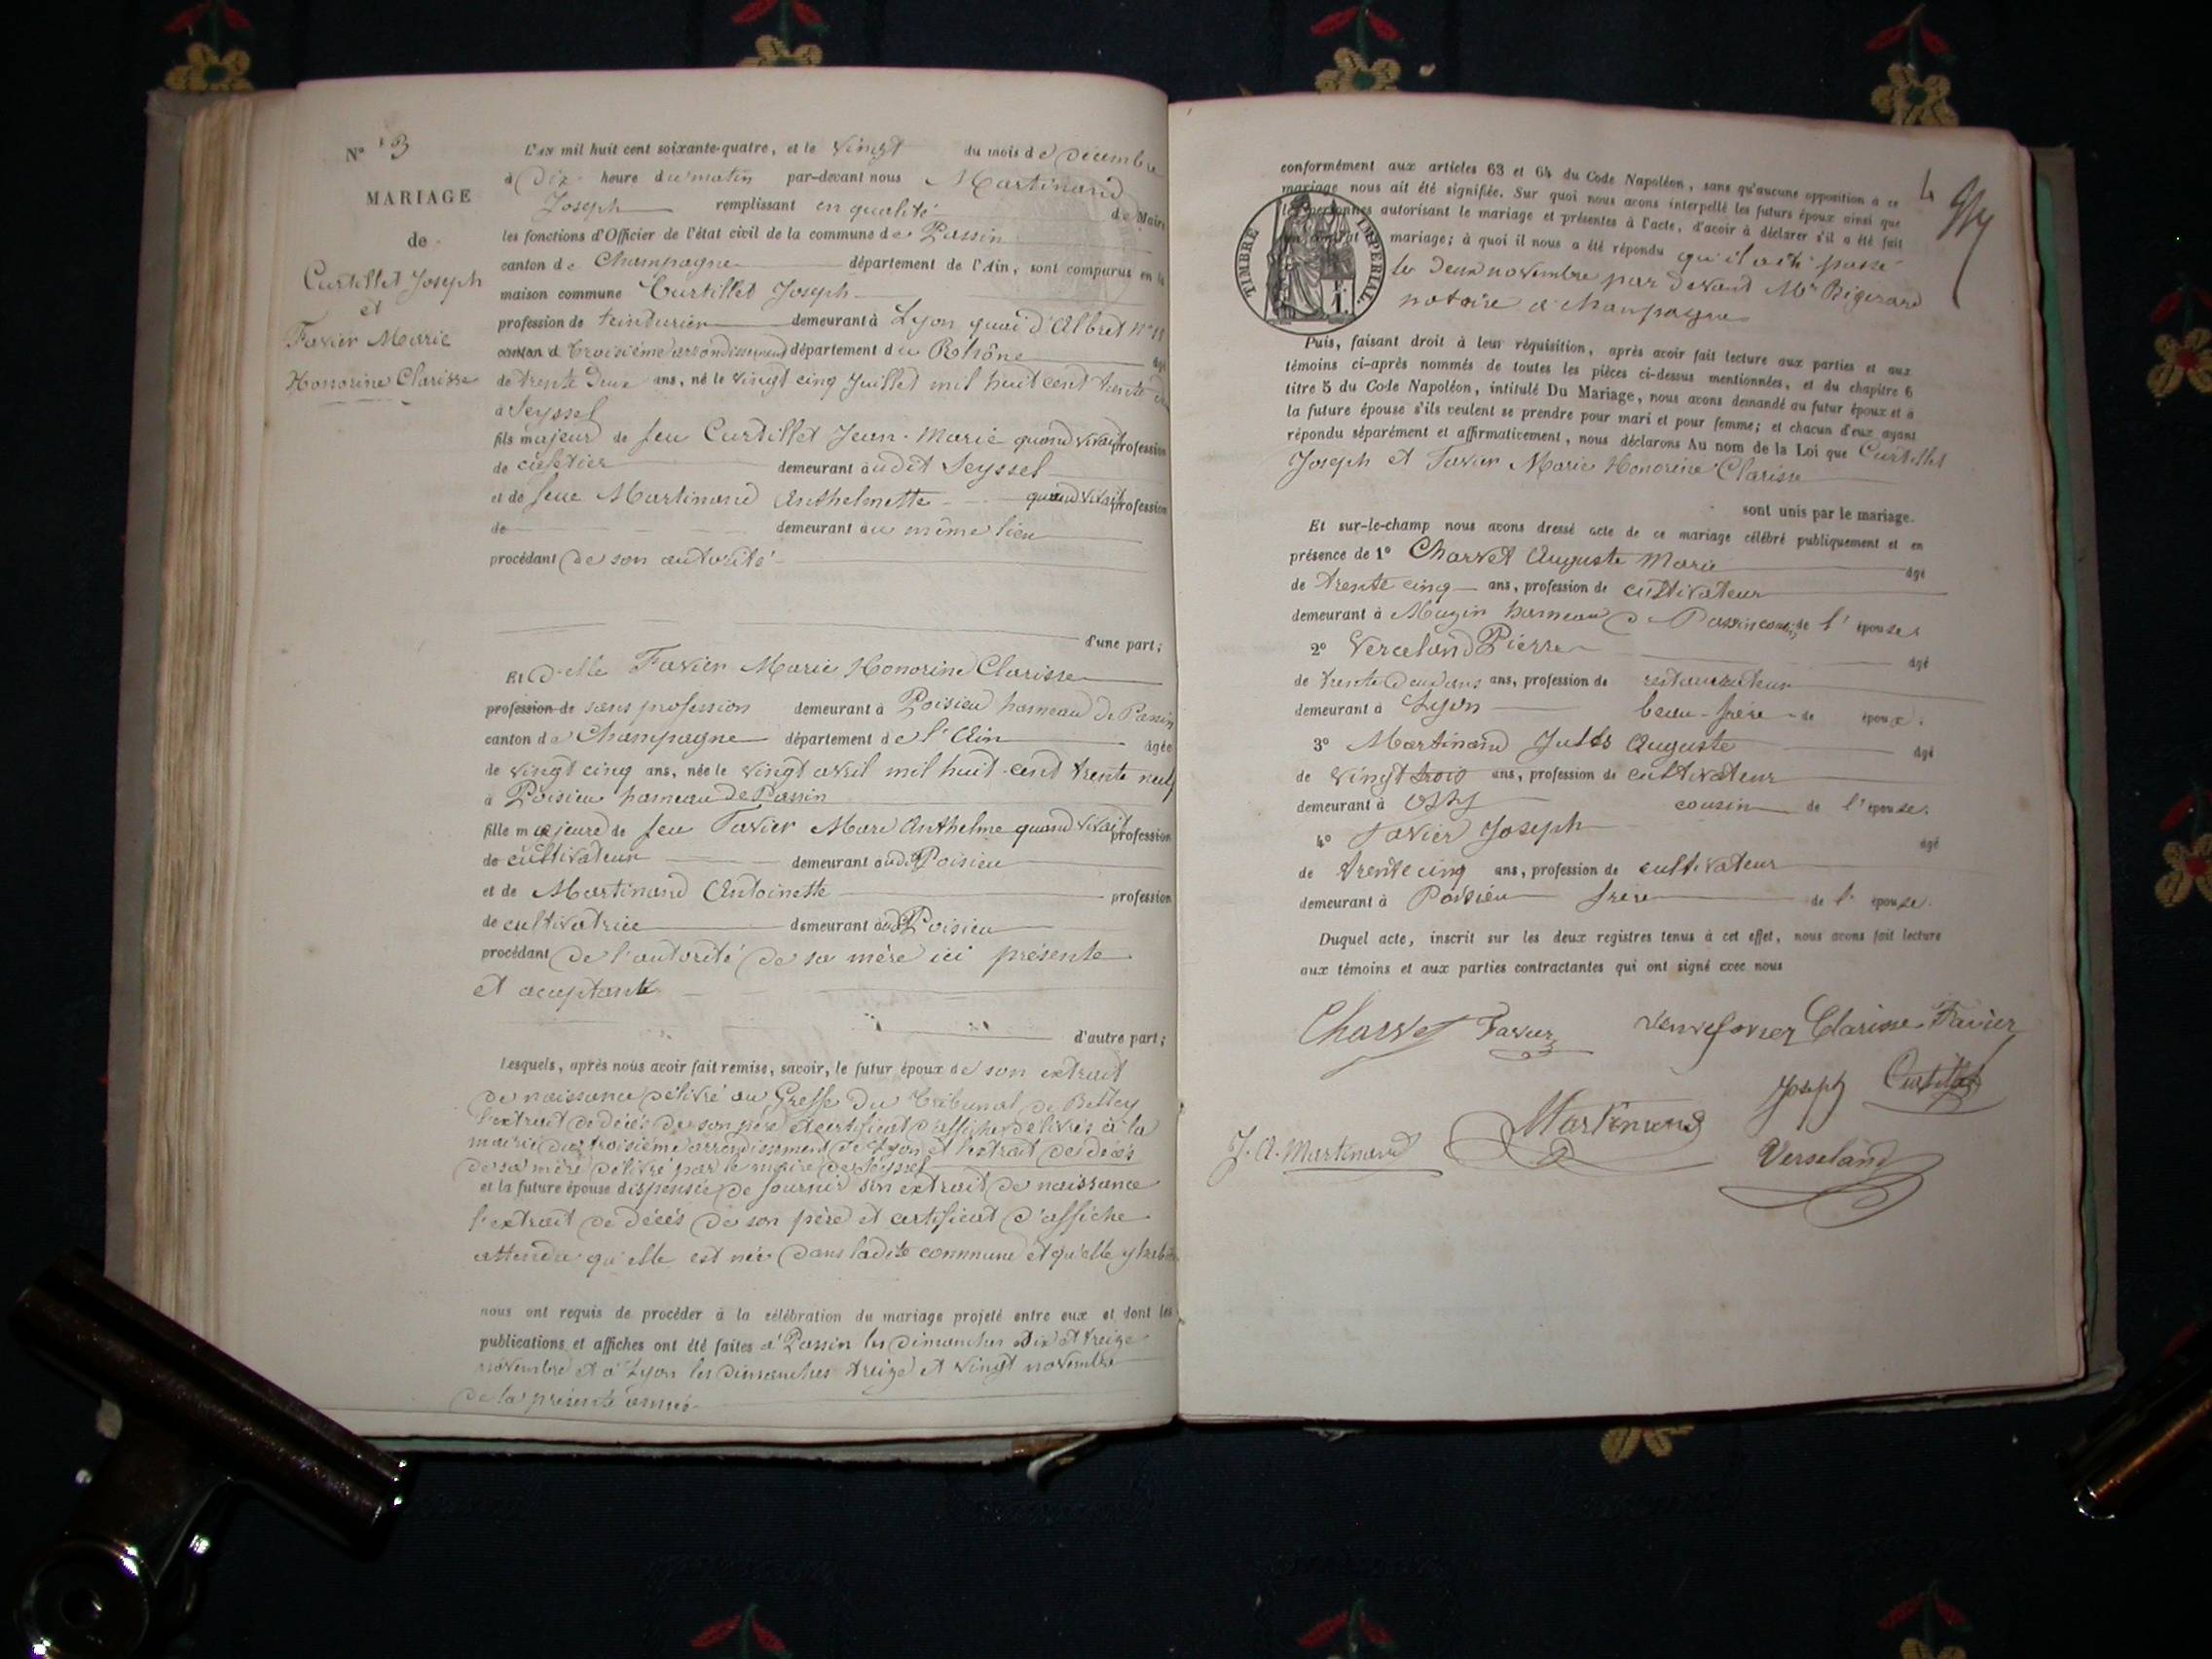 N° 3
MARIAGE
de
Curtillet Joseph
et
Favier Marie
Honorine Clarisse
L'AN mil huit cent soixante-quatre, et le vingt du mois de décembre
à dix heure du matin par-devant nous Martinand
Joseph remplissant en qualité de Maire
les fonctions d'Officier de l'état civil de la commune de Passin
canton de Champagne département de l'Ain, sont comparus en la
maison commune Curtillet Joseph
profession de teinturier demeurant à Lyon quai d'Albret n°
canton d troisième arrondissement département du Rhône âgé
de trente deux ans, né le vingt cinq Juillet mil huit cent trente
à Seyssel
fils majeur de feu Curtillet Jean-Marie quand vivait profession
de cafetier demeurant audit Seyssel
et de feue Martinand Anthelmette quand vivait profession
de demeurant au même lieu
procédant de son autorité
d'une part;
Et delle Favier Marie Honorine Clarisse
profession de sans profession demeurant à Poisieu hameau de Passin
canton de Champagne département de l'Ain âgée
de vingt cinq ans, née le vingt avril mil huit cent trente neuf
à Poisieu hameau de Passin
fille majeure de feu Favier Marc Anthelme quand vivait profession
de cultivateur demeurant audit Poisieu
et de Martinand Antoinette profession
de cultivatrice demeurant audit Poisieu
procédant de l'autorité de sa mère ici présente
et acceptante
d'autre part;
Lesquels, après nous avoir fait remise, savoir, le futur époux de son extrait
de naissance délivré au Greffe du Tribunal de Belley
l'extrait de décès de son père et certificat d'affiche délivrés à la
mairie du troisième arrondissement de Lyon et l'extrait de décès
de sa mère délivré par le maire de Seyssel
et la future épouse dispensée de fournir son extrait de naissance
l'extrait de décès de son père et certificat d'affiche
attendu qu'elle est née dans ladite commune et qu'elle y habite
nous ont requis de procéder à la célébration du mariage projeté entre eux et dont les
publications et affiches ont été faites à Passin les dimanches six et treize
novembre et à Lyon les dimanches treize et vingt novembre
de la présente année
4
conformément aux articles 63 et 64 du Code Napoléon, sans qu'aucune opposition à ce
mariage nous ait été signifiée. Sur quoi nous avons interpellé les futurs époux ainsi que
les personnes autorisant le mariage et présentes à l'acte, d'avoir à déclarer s'il a été fait
un contrat de mariage; à quoi il nous a été répondu qu'il a été passé
le deux novembre par devant Me
notaire à Champagne
TIMBRE IMPERIAL.
1 F.
Puis, faisant droit à leur réquisition, après avoir fait lecture aux parties et aux
témoins ci-après nommés de toutes les pièces ci-dessus mentionnées, et du chapitre 6
titre 5 du Code Napoléon, intitulé Du Mariage, nous avons demandé au futur époux et à
la future épouse s'ils veulent se prendre pour mari et pour femme; et chacun d'eux ayant
répondu séparément et affirmativement, nous déclarons Au nom de la Loi que Curtillet
Joseph et Favier Marie Honorine Clarisse
sont unis par le mariage.
Et sur-le-champ nous avons dressé acte de ce mariage célébré publiquement et en
présence de 1° Charvet Auguste Marie âgé
de trente cinq ans, profession de cultivateur
demeurant à Mazin hameau de Passin cousin de l'épouse
2° Verceland Pierre âgé
de trente deux ans ans, profession de restaurateur
demeurant à Lyon beau-frère de époux.
3° Martinand Jules Auguste âgé
de vingt trois ans, profession de cultivateur
demeurant à cousin de l'épouse.
4° Favier Joseph âgé
de trente cinq ans, profession de cultivateur
demeurant à Poisieu frère de l'épouse.
Duquel acte, inscrit sur les deux registres tenus à cet effet, nous avons fait lecture
aux témoins et aux parties contractantes qui ont signé avec nous
Charvet Favier veuve favier Clarisse Favier
Joseph Curtillet
J. A. Martinand Martinand Verseland